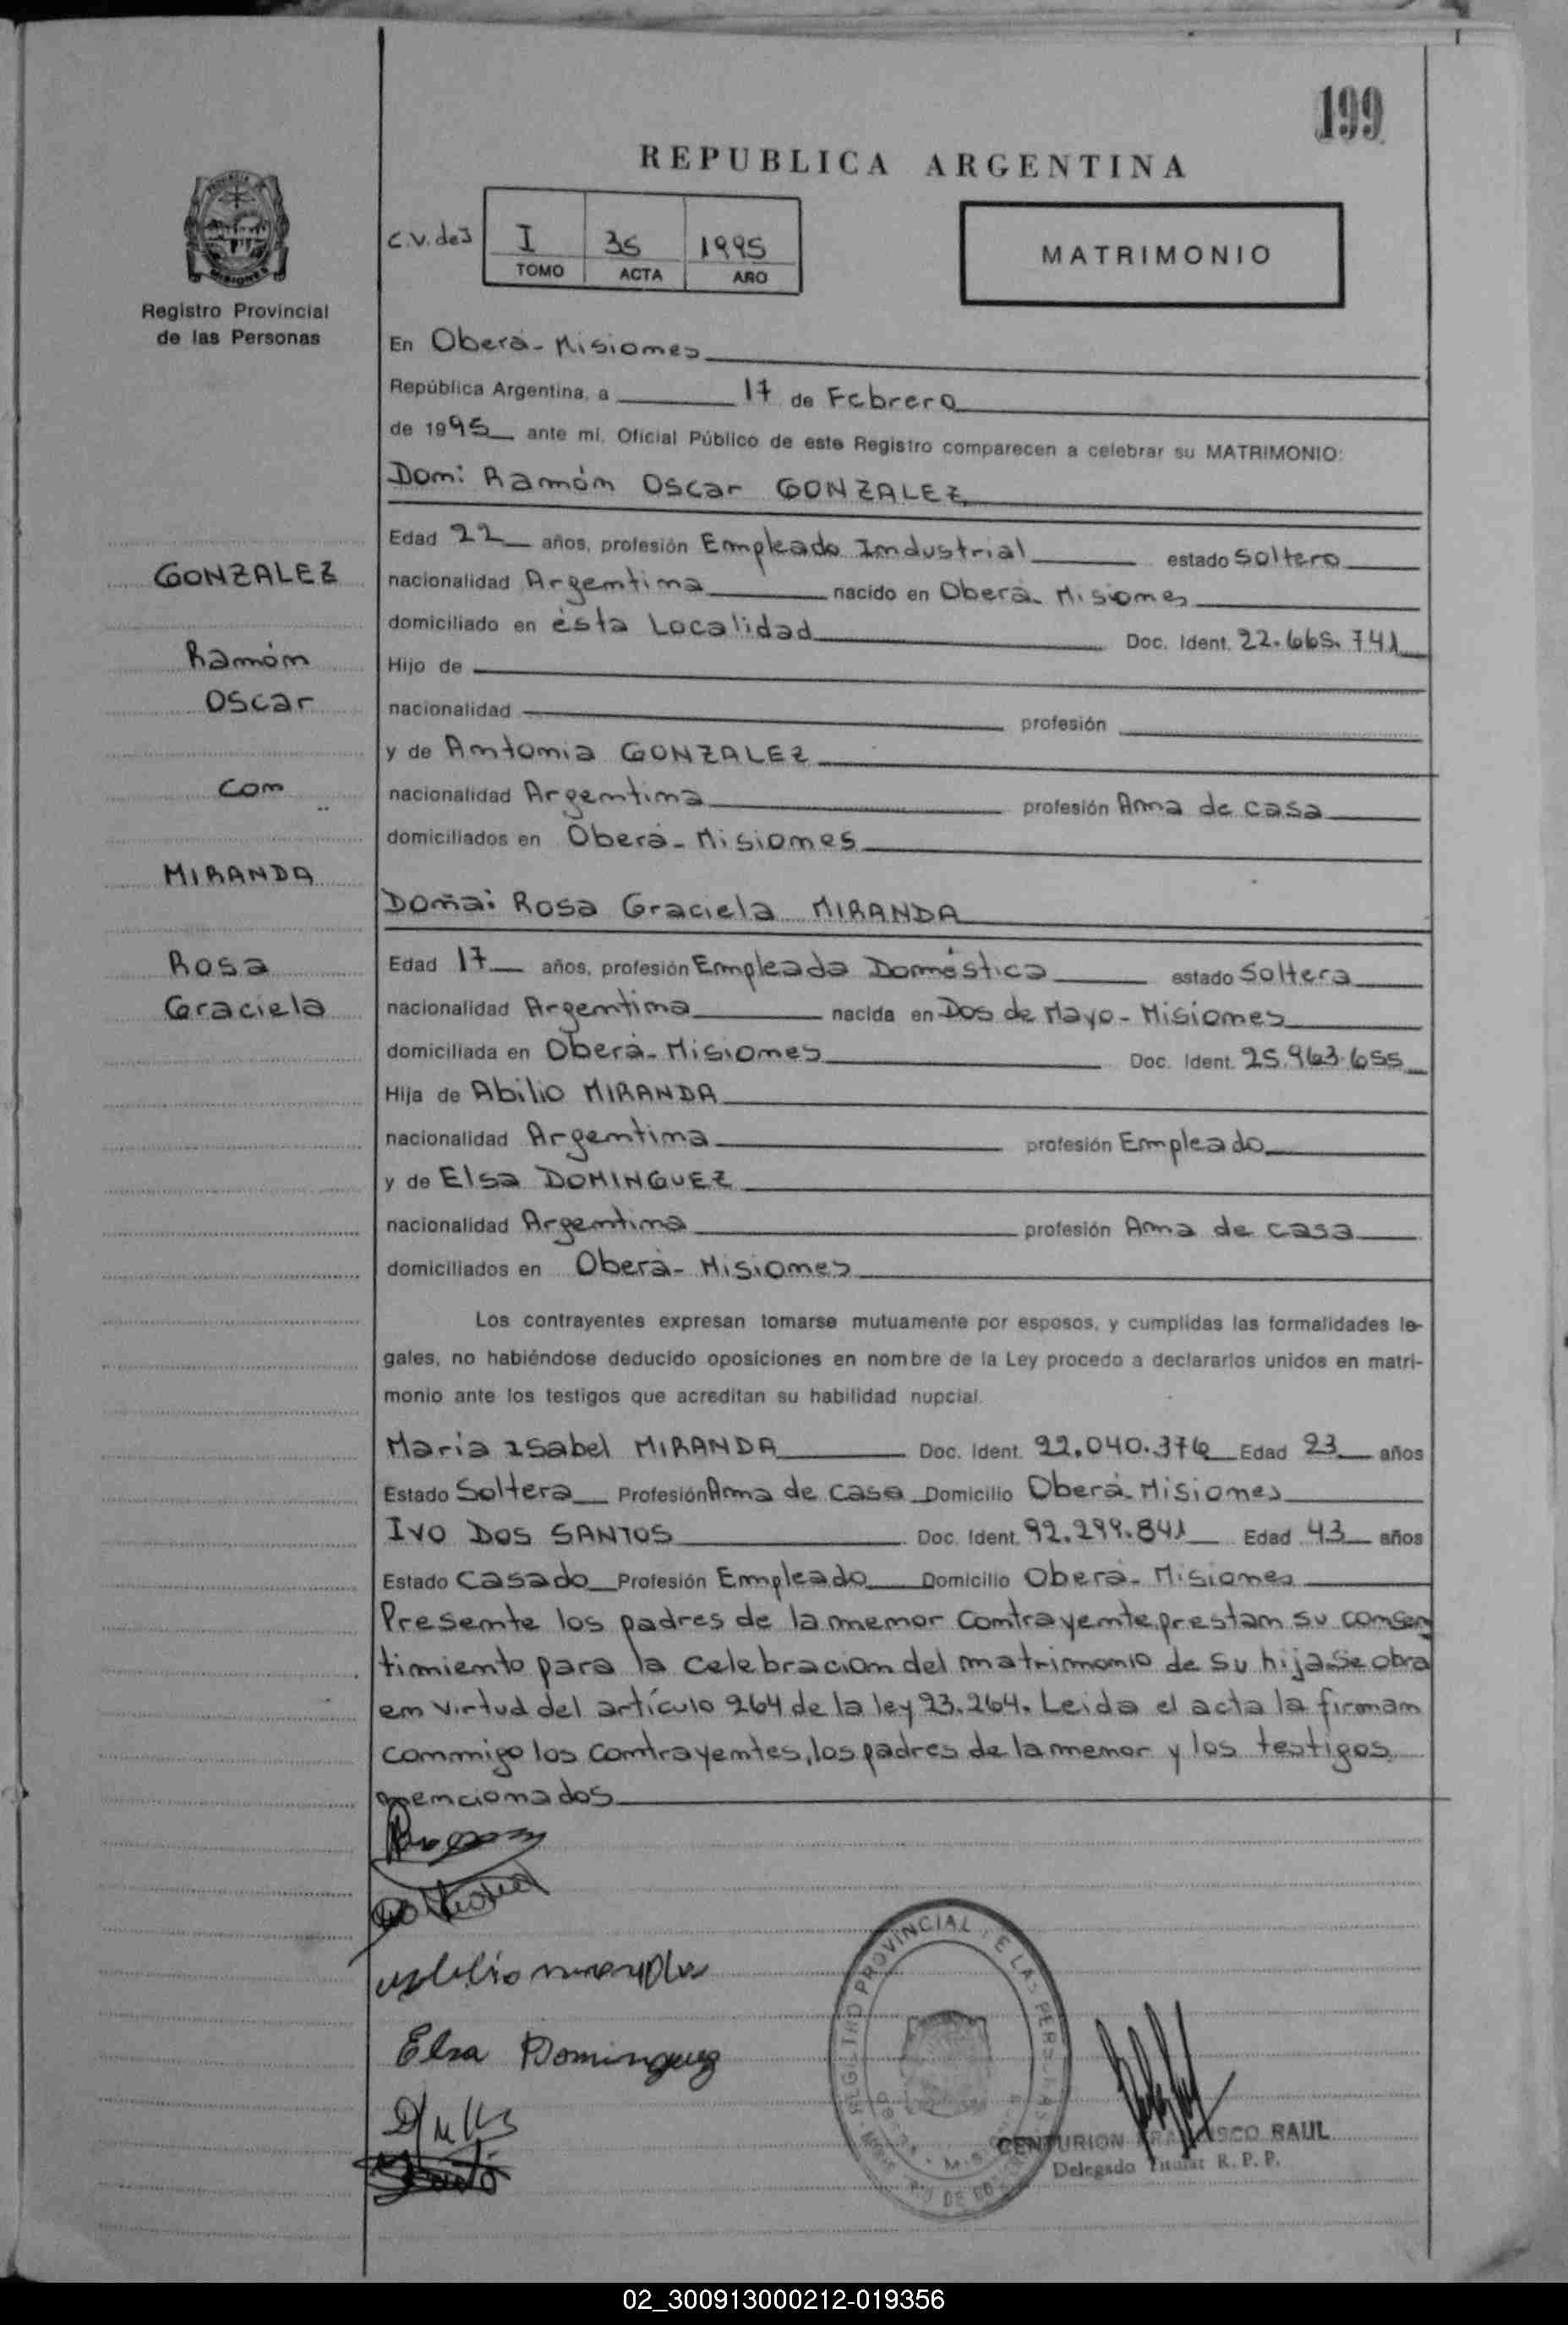 199
REPUBLICA ARGENTINA
PROVINCIA
MISIONES
Registro Provincial
de las Personas
C.V. de J
I 35 1995
TOMO ACTA AÑO
MATRIMONIO
En Oberá - Misiones
República Argentina, a 17 de Febrero
de 1995 ante mí, Oficial Público de este Registro comparecen a celebrar su MATRIMONIO:
Don: Ramón Oscar GONZALEZ
Edad 22 años, profesión Empleado Industrial estado Soltero
nacionalidad Argentina nacido en Oberá - Misiones
domiciliado en ésta Localidad Doc. Ident. 22.665.741
Hijo de
nacionalidad profesión
y de Antonia GONZALEZ
nacionalidad Argentina profesión Ama de casa
domiciliados en Oberá - Misiones
GONZALEZ
Ramón
Oscar
con
MIRANDA
Rosa
Graciela
Doña: Rosa Graciela MIRANDA
Edad 17 años, profesión Empleada Doméstica estado Soltera
nacionalidad Argentina nacida en Dos de Mayo - Misiones
domiciliada en Oberá - Misiones Doc. Ident. 25.963.655
Hija de Abilio MIRANDA
nacionalidad Argentina profesión Empleado
y de Elsa DOMINGUEZ
nacionalidad Argentina profesión Ama de casa
domiciliados en Oberá - Misiones
Los contrayentes expresan tomarse mutuamente por esposos, y cumplidas las formalidades le-
gales, no habiéndose deducido oposiciones en nombre de la Ley procedo a declararlos unidos en matri-
monio ante los testigos que acreditan su habilidad nupcial.
Maria Isabel MIRANDA Doc. Ident. 22.040.376 Edad 23 años
Estado Soltera Profesión Ama de casa Domicilio Oberá - Misiones
IVO DOS SANTOS Doc. Ident. 92.299.841 Edad 43 años
Estado Casado Profesión Empleado Domicilio Oberá - Misiones
Presente los padres de la menor contrayente, prestan su consen
timiento para la celebracion del matrimonio de su hija. Se obra
en virtud del artículo 264 de la ley 23.264. Leida el acta la firman
conmigo los contrayentes, los padres de la menor y los testigos
mencionados
Elsa Dominguez
REGISTRO PROVINCIAL DE LAS PERSONAS
CENTURION FRANCISCO RAUL
Delegado Titular R. P. P.
02_300913000212-019356